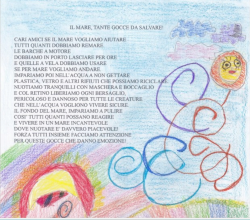 IL MARE, TANTE GOCCE DA SALVARE!
CARI AMICI SE IL MARE VOGLIAMO AIUTARE
TUTTI QUANTI DOBBIAMO REMARE.
LE BARCHE A MOTORE
DOBBIAMO IN PORTO LASCIARE PER ORE
E QUELLE A VELA DOBBIAMO USARE
SE PER MARE VOGLIAMO ANDARE.
IMPARIAMO POI NELL'ACQUA A NON GETTARE
PLASTICA, VETRO E ALTRI RIFIUTI CHE POSSIAMO RICICLARE.
NUOTIAMO TRANQUILLI CON MASCHERA E BOCCAGLIO
E COL RETINO LIBERIAMO OGNI BERSAGLIO,
PERICOLOSO E DANNOSO PER TUTTE LE CREATURE
CHE NELL'ACQUA VOGLIONO VIVERE SICURE.
IL FONDO DEL MARE, IMPARIAMO A PULIRE
COSI' TUTTI QUANTI POSSIAMO REAGIRE
E VIVERE IN UN MARE INCANTEVOLE
DOVE NUOTARE E' DAVVERO PIACEVOLE!
FORZA TUTTI INSIEME FACCIAMO ATTENZIONE
PER QUESTE GOCCE CHE DANNO EMOZIONE!